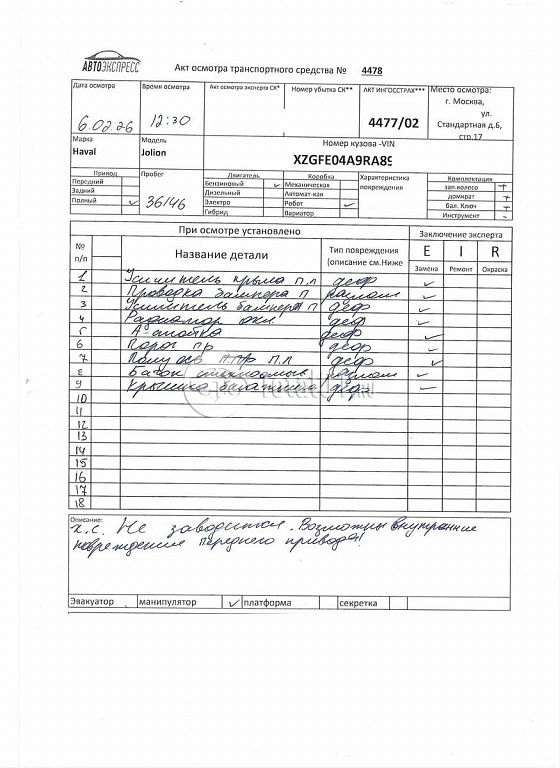 АВТОЭКСПРЕСС
Акт осмотра транспортного средства № 4478
Дата осмотра Время осмотра Акт осмотра эксперта СК* Номер убытка СК** АКТ ИНГОССТРАХ*** Место осмотра:
г. Москва,
ул.
6.02.26 12:30 4477/02 Стандартная д.6,
стр.17
Марка Модель Номер кузова -VIN
Haval Jolion XZGFE04A9RA85
Привод Пробег Двигатель Коробка Характеристика повреждения Комплектация
Передний Бензиновый ✓ Механическая зап.колесо +
Задний Дизельный Автомат-кая домкрат +
Полный ✓ 36146 Электро Робот ✓ бал. Ключ +
Гибрид Вариатор Инструмент -
При осмотре установлено Заключение эксперта
№ п/п Название детали Тип повреждения (описание см.Ниже E I R
Замена Ремонт Окраска
1 Усилитель крыла п.л деф ✓
2 Проводка бампера п разлом ✓
3 Усилитель бампера п деф ✓
4 Радиатор охл. деф ✓
5 А-стойка деф ✓
6 Порог пр деф ✓
7 п.пр п.л деф ✓
8 Бачок разлом ✓
9 Крышка деф. —
10
11
12
13
14
15
16
17
18
Описание:
х.с. Не заводится. Возможны внутренние
повреждения переднего привода!
Эвакуатор манипулятор ✓ платформа секретка